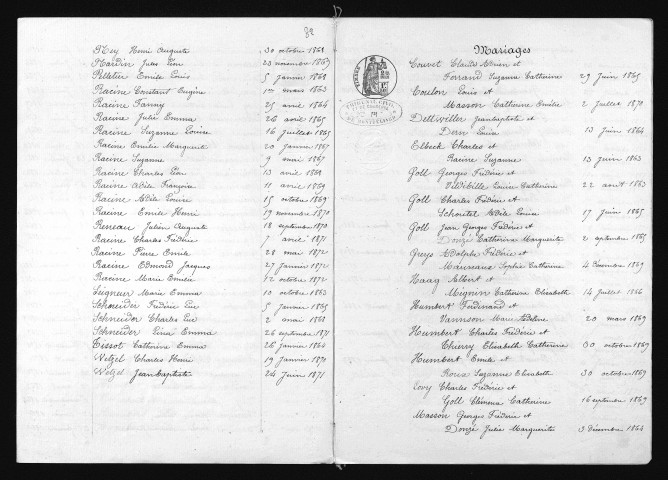 82
Rey Henri Auguste 30 octobre 1868
Nardin Jules Léon 23 novembre 1869
Pelletier Emile Louis 5 janvier 1868
Racine Constant Eugène 1er mars 1863
Racine Fanny 25 avril 1864
Racine Julie Emma 26 avril 1865
Racine Suzanne Louise 16 juillet 1865
Racine Emilie Marguerite 20 janvier 1867
Racine Suzanne 9 mai 1867
Racine Charles Léon 13 avril 1868
Racine Adèle Françoise 11 avril 1869
Racine Adèle Louise 15 octobre 1869
Racine Emile Henri 19 novembre 1870
Reneau Julien Auguste 18 septembre 1870
Racine Charles Frédéric 7 avril 1871
Racine Pierre Emile 28 mai 1872
Racine Edmond Jacques 27 janvier 1872
Racine Marie Emilie 12 octobre 1872
Seigneur Marie Emma 10 octobre 1863
Schneider Frédéric Luc 5 janvier 1865
Schneider Charles Luc 2 mai 1868
Schneider Lina Emma 26 septembre 1871
Tissot Catherine Emma 26 janvier 1864
Wetzel Charles Henri 19 janvier 1870
Wetzel Jean Baptiste 24 juin 1871
Mariages
Couvet Claude Adrien et
Ferrand Suzanne Catherine 29 juin 1865
Coulon Louis et
Masson Catherine Emilie 2 juillet 1870
Dettwiller Jean baptiste et
Dern Louise 13 juin 1864
Elbeck Charles et
Racine Suzanne 13 juin 1863
Goll Georges Frédéric et
Vuillebille Louise Catherine 22 août 1863
Goll Charles Frédéric et
Schoutet Adèle Louise 17 juin 1865
Goll Jean Georges Frédéric et
Donzé Catherine Marguerite 2 septembre 1865
Greys Adolphe Frédéric et
Maumary Sophie Catherine 4 décembre 1869
Haag Albert et
Mugnier Catherine Elisabeth 14 juillet 1866
Humbert Ferdinand et
Vannson Marie Adeline 20 mars 1869
Humbert Charles Frédéric et
Thierry Elisabeth Catherine 30 octobre 1869
Humbert Emile et
Roux Suzanne Elisabeth 30 octobre 1869
Lovy Charles Frédéric et
Goll Clémence Catherine 16 septembre 1869
Masson Georges Frédéric et
Donzé Julie Marguerite 3 décembre 1864